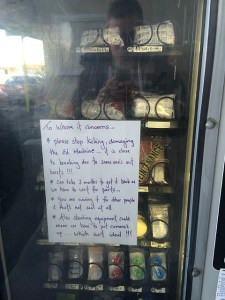 To Whom it concerns...
* please stop kicking, damaging
the Old Machine... it is close
to breaking due to some ones out
bursts !!!
* Can take 2 months to get it back as
we have to wait for parts...
* You are ruining it for other people
& that's not cool at all
* Also stealing equipment could
mean we have to put cameras
up... which isn't ideal !!!